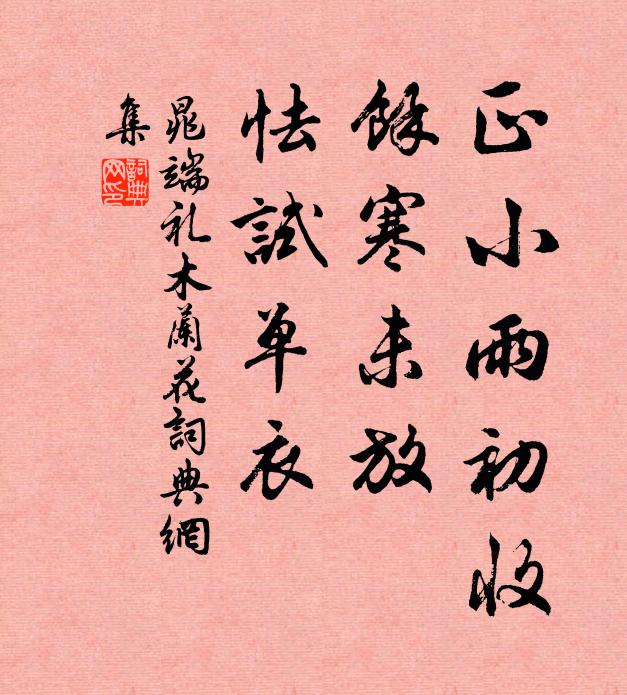 正小雨初收
餘寒未放
怯試单衣
晁端礼木蘭花詞典網
集
詞典网印